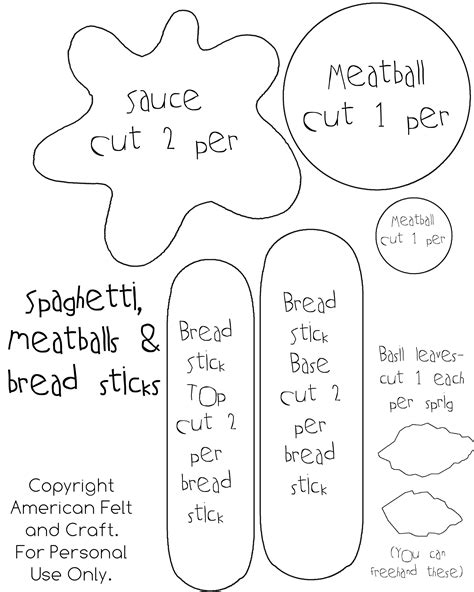 Sauce
cut 2 per
Meatball
cut 1 per
Meatball
cut 1 per
Spaghetti,
meatballs &
bread sticks
Bread
stick
Top
cut 2
per
bread
stick
Bread
stick
Base
cut 2
per
bread
stick
Basil leaves-
cut 1 each
per sprig
(You can
freehand these)
Copyright
American Felt
and Craft.
For Personal
Use Only.